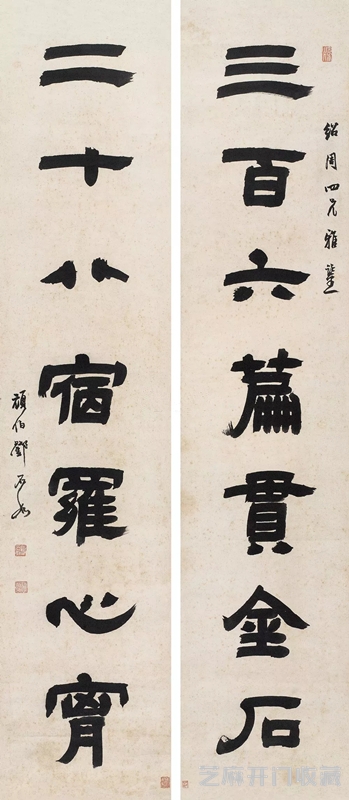 紹周四兄雅鑒
三百六篇貫金石
二十八宿羅心胷
頑伯鄧石如
芝麻开门收藏